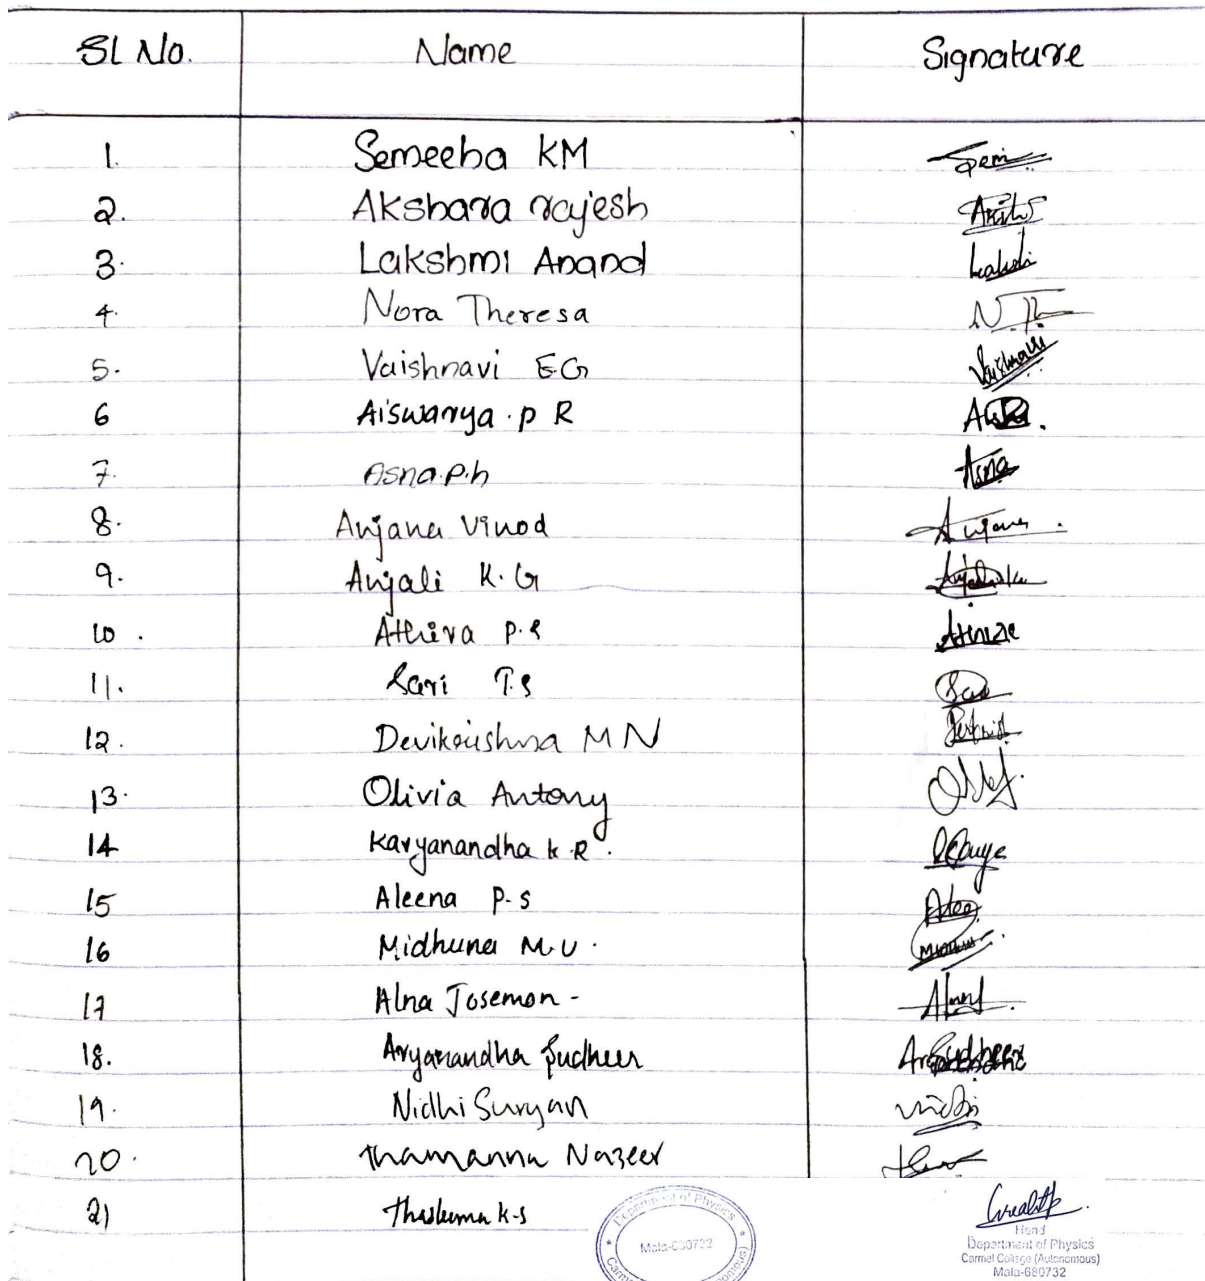 Sl No. Name Signature
1. Semeeha KM Semi
2. Akshara rajesh
3. Lakshmi Anand Lakshi
4. Nora Theresa N Th
5. Vaishnavi E.G Vaishnavi
6 Aiswarya . P R
7. Asna.P.h Asna
8. Anjana Vinod Anjana .
9. Anjali K. G
10 . Athira P.S
11. Sari T.S
12. Devikrishna M N
13. Olivia Antony
14 Karyanandha K R .
15 Aleena P-S
16 Midhuna M.U .
17 Alna Josemon -
18. Aryanandha Sudheer
19. Nidhi Suryan Nidhi
20. Thamanna Nazeer
21 K-S
Department of Physics
Mala-680732
Head
Department of Physics
Carmel College (Autonomous)
Mala-680732